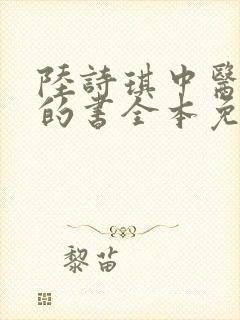 陸詩琪中醫
的書全本免
黎苗